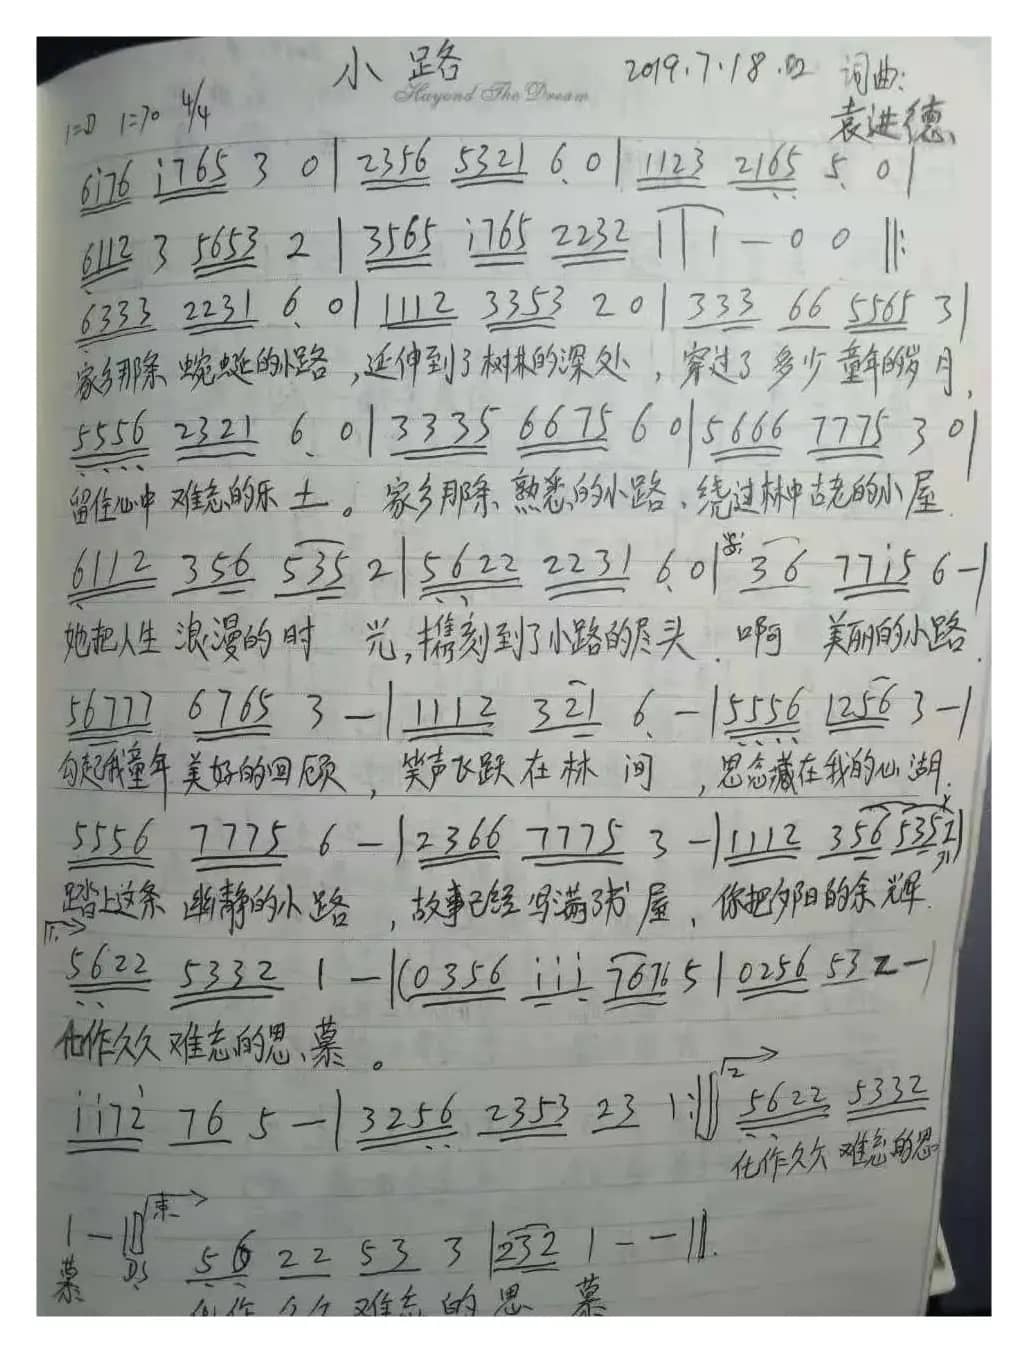 小路
Hayond The Dream
2019.7.18
词曲:
袁进德
1=D 1=70 4/4
6i76 i765 3 0 | 2356 5321 6 0 | 1123 2165 5 0 |
6112 3 5653 2 | 3565 i765 2232 1 1 1 — 0 0 ‖:
6333 2231 6 0 | 1112 3353 2 0 | 333 66 5565 3 |
家乡那条 蜿蜒的小路 ,延伸到了树林的深处 , 穿过了 多少 童年的岁月,
5556 2321 6 0 | 3335 6675 6 0 | 5666 7775 3 0 |
留住心中 难忘的乐土。 家乡那条 熟悉的小路、绕过林中古老的小屋.
6112 356 535 2 | 5622 2231 6 0 | 36 77i5 6 — |
她把人生 浪漫的时光,携刻到了小路的尽头. 啊 美丽的小路.
56777 6765 3 — | 1112 321 6 — | 5556 1256 3 — |
勾起我童年 美好的回顾 , 笑声飞跃在林间 ,思念藏在我的心湖.
5556 7775 6 — | 2366 7775 3 — | 1112 356 5352 |
踏上这条 幽静的小路 ,故事已经写满了书屋 , 你把夕阳的余辉.
1.
5622 5332 1 — | (0356 iii 7676 5 | 0256 53 2 — |
化作久久 难忘的思慕。
i i 7 2 76 5 — | 3256 2353 23 1 :‖ 2 5622 5332
化作久久 难忘的思
1 — ‖ 束 56 22 53 3 | 232 1 — — ‖.
慕 DS 化作 久久 难忘 的 思 慕